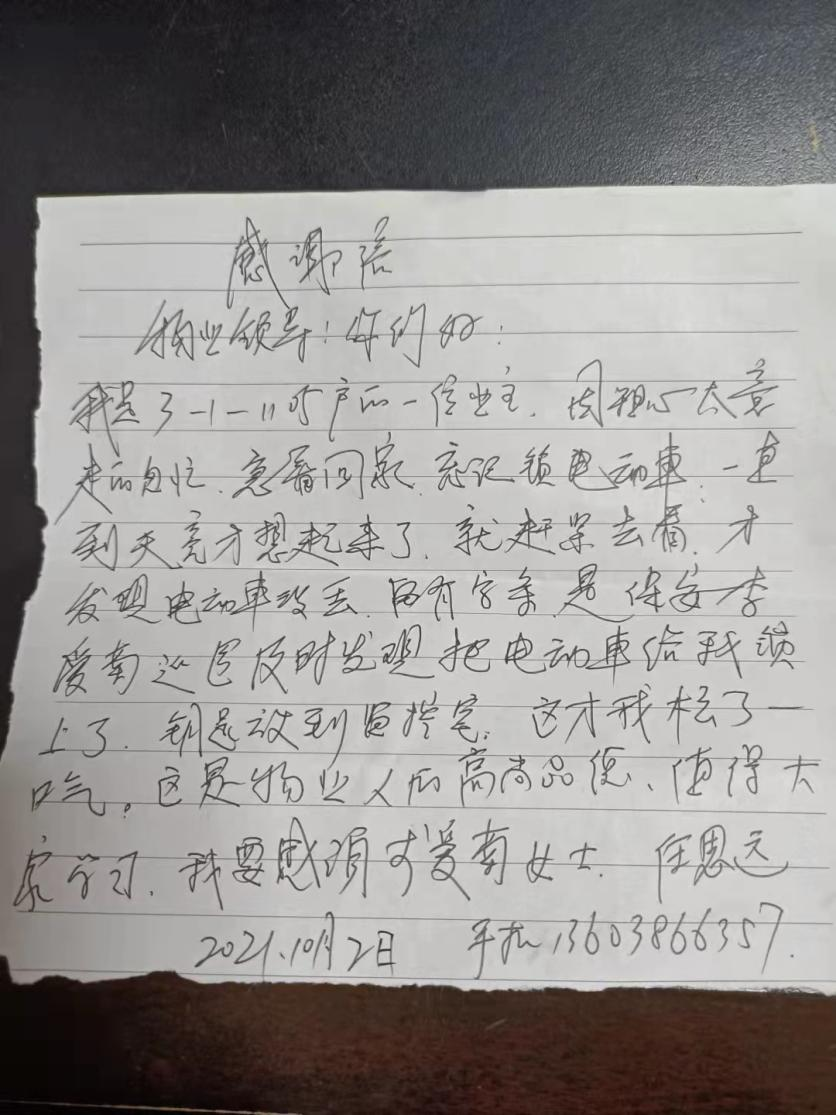 感谢信
物业领导！你们好：
我是3-1-1105户的一位业主，因粗心大意
走的匆忙、急着回家、忘记锁电动車，一直
到天亮才想起来了，就赶紧去看，才
发现电动車没丢，留有字条，是保安李
爱菊巡逻及时发现把电动車给我锁
上了，钥匙放到监控室，这才我松了一
口气。这是物业人的高尚品德、值得大
家学习，我要感谢李爱菊女士. 任思远
2021.10月2日 手机13603866357.